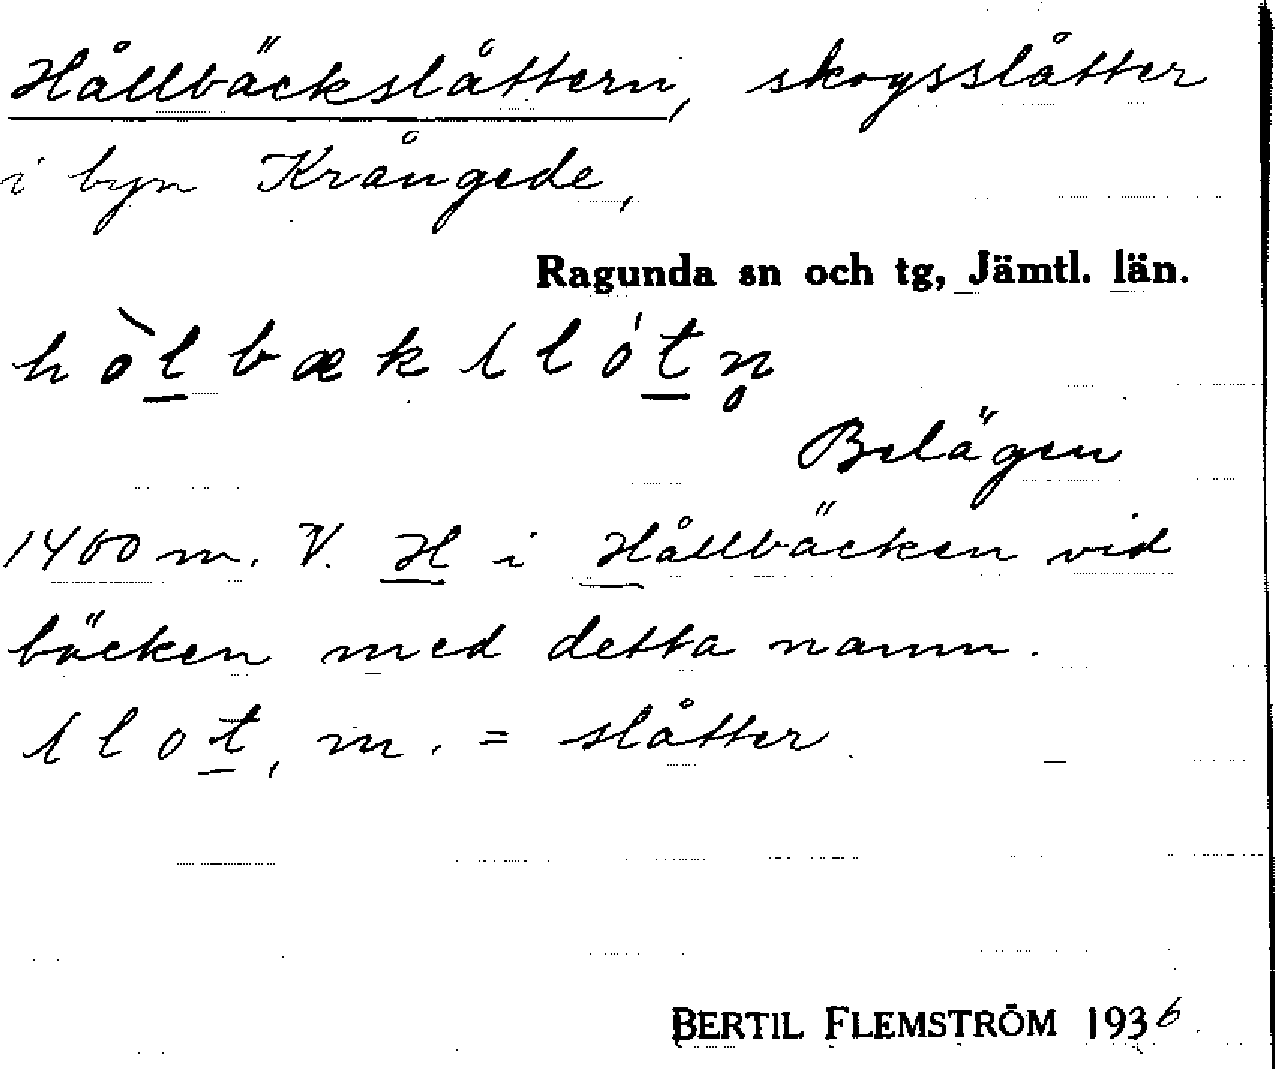 Hållbäckslåttern, skogsslåtter
i byn Krångede,
Ragunda sn och tg, Jämtl. län.
hòl̲bækſlót̲n̥
Belägen
1400 m. V. H i Hållbäcken vid
bäcken med detta namn.
ſlot̲, m. = slåtter.
BERTIL FLEMSTRÖM 1936